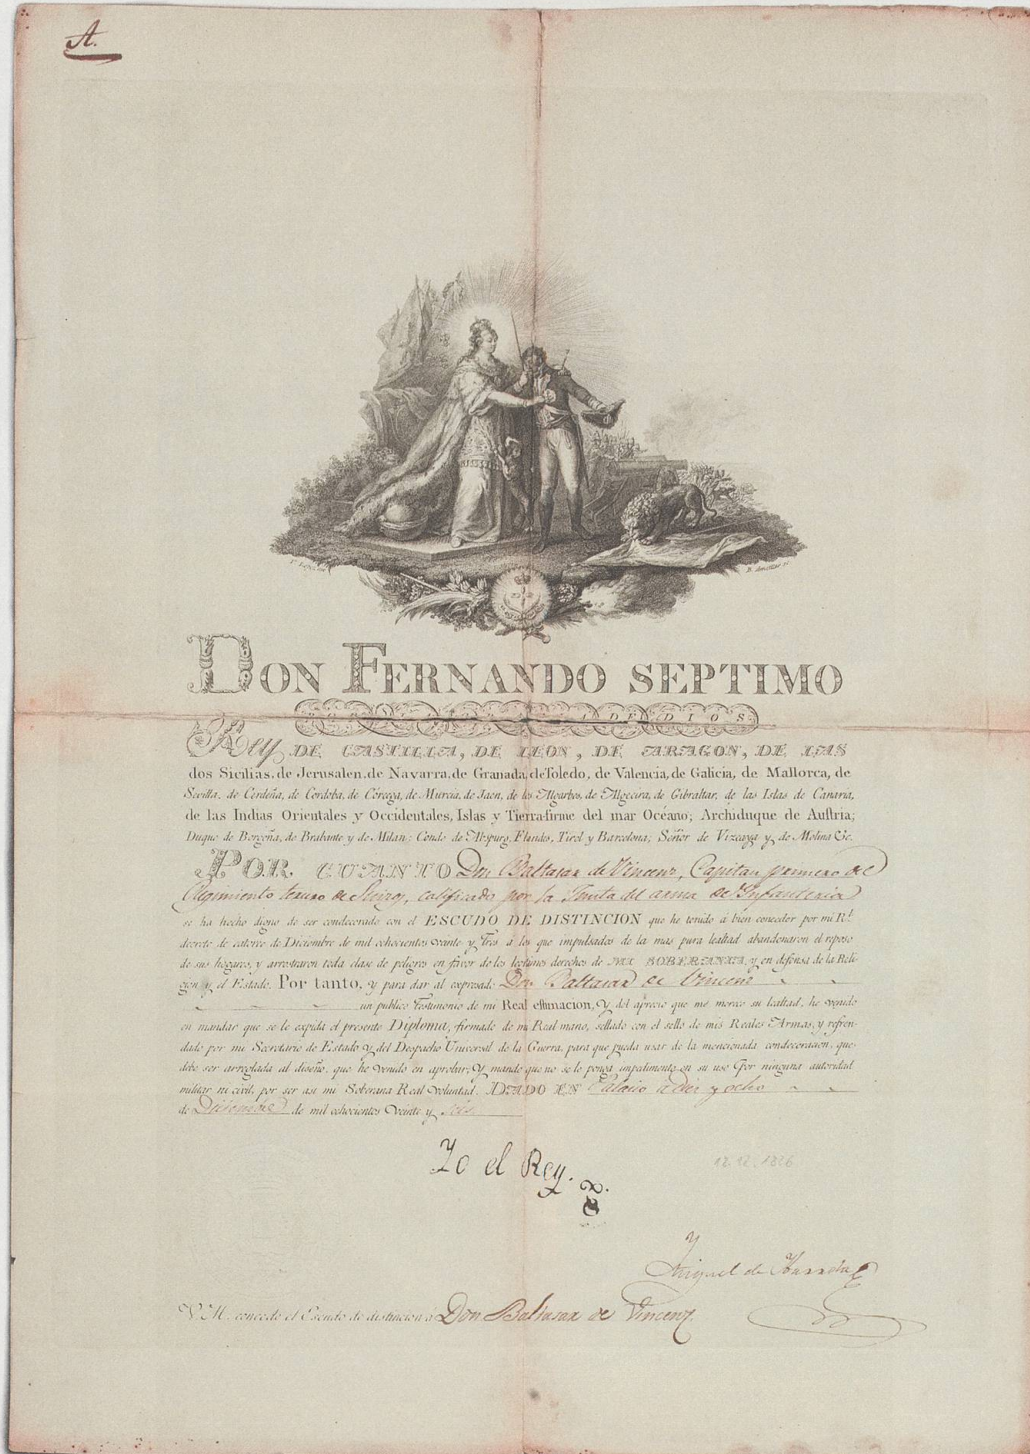 A.
DON FERNANDO SEPTIMO
DE DIOS
Rey DE CASTILLA, DE LEON, DE ARAGON, DE LAS
dos Sicilias, de Jerusalen, de Navarra, de Granada, de Toledo, de Valencia, de Galicia, de Mallorca, de
Sevilla, de Cerdeña, de Cordoba, de Córcega, de Murcia, de Jaen, de los Algarbes, de Algecira, de Gibraltar, de las Islas de Canaria,
de las Indias Orientales y Occidentales, Islas y Tierra-firme del mar Océano; Archiduque de Austria;
Duque de Borgoña, de Brabante y de Milan; Conde de Abspurg, Flandes, Tirol y Barcelona; Señor de Vizcaya y de Molina &c.
POR CUANTO Don Baltasar de Vincenz, Capitan primero del
Regimiento tercero de Suizos, calificado por la Junta del arma de Infanteria
se ha hecho digno de ser condecorado con el ESCUDO DE DISTINCION que he tenido á bien conceder por mi Rl.
decreto de catorce de Diciembre de mil ochocientos veinte y tres á los que impulsados de la mas pura lealtad abandonaron el reposo
de sus hogares, y arrostraron toda clase de peligros en favor de los legítimos derechos de MI SOBERANIA, y en defensa de la Reli-
gion y el Estado. Por tanto, y para dar al expresado Don Baltasar de Vincenz
un publico testimonio de mi Real estimacion, y del aprecio que me merece su lealtad, he venido
en mandar que se le expida el presente Diploma, firmado de mi Real mano, sellado con el sello de mis Reales Armas, y refren-
dado por mi Secretario de Estado y del Despacho Universal de la Guerra, para que pueda usar de la mencionada condecoracion, que
debe ser arreglada al diseño, que he venido en aprobar; y mando que no se le ponga impedimento en su uso por ninguna autoridad
militar ni civil, por ser asi mi Soberana Real voluntad. DADO EN Palacio a diez y ocho
de Diciembre de mil ochocientos veinte y seis
Yo el Rey.
12.12.1826
Miguel de
V. M. concede el Escudo de distincion á Don Baltasar de Vincenz